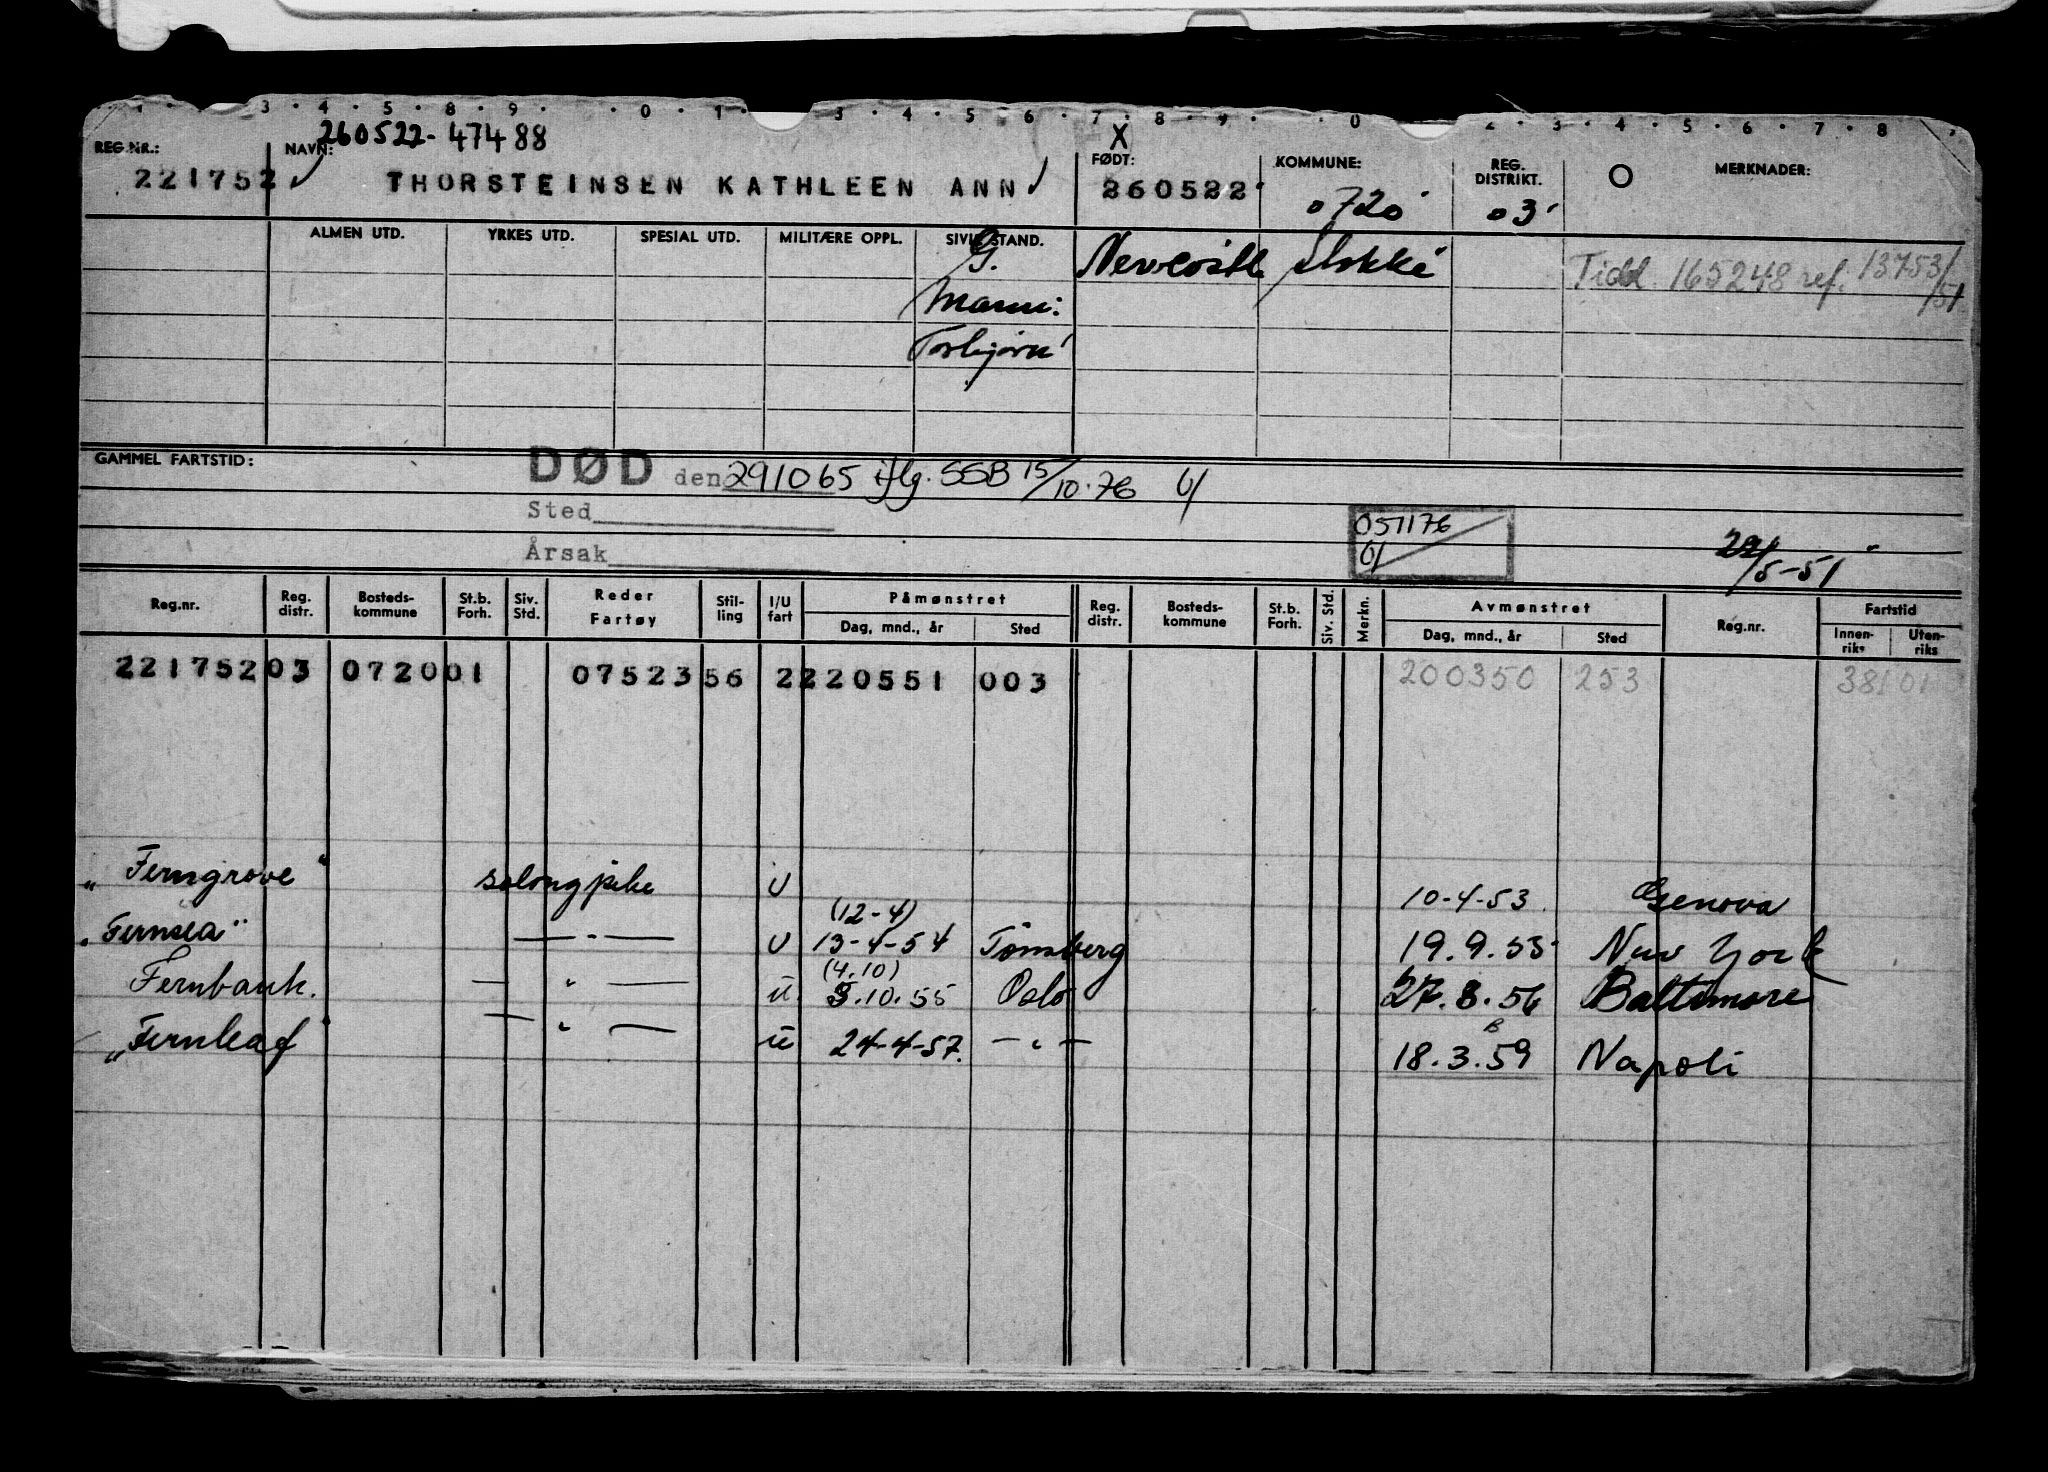 3 · 4 · 5 · 8 · 9 · · 0 · 1 · 3 · 4 · 5 · 6 · 7 · 8 · 9 · · 0 2 · 3 · 4 · 5 · 6 · 7 · 8
260522-47488 X
REG.NR.: NAVN: FØDT: KOMMUNE: REG. DISTRIKT. O MERKNADER:
221752 THORSTEINSEN KATHLEEN ANN 260522 0720 03
ALMEN UTD. YRKES UTD. SPESIAL UTD. MILITÆRE OPPL. SIVILSTAND.
G. Newcastl Stokke Tidl. 165248 ref. 13753/51
Mann:
Torbjørn
GAMMEL FARTSTID: DØD den 291065 iflg. SSB 15/10.76 U
Sted
051176
U
Årsak 22/5-51
Reg.nr. Reg. distr. Bosteds- kommune St.b. Forh. Siv. Std. Reder Fartøy Stil- ling I/U fart Påmønstret Reg. distr. Bosteds- kommune St.b. Forh. Siv. Std. Merkn. Avmønstret Reg.nr. Fartstid
Dag, mnd., år Sted Dag, mnd., år Sted Innen- riks Uten- riks
221752 03 0720 01 07523 56 2 220551 003 200350 253 38101
"Ferngrove" salongpike U 10-4-53 Genova
(12-4)
"Fernsea" — " — U 13-4-54 Tønsberg 19.9.55 New York
(4.10)
Fernbank. — " — U 5.10.55 Oslo 27.8.56 Baltimore
"Fernleaf" — " — U 24-4-57. — " — 18.3.59 Napoli